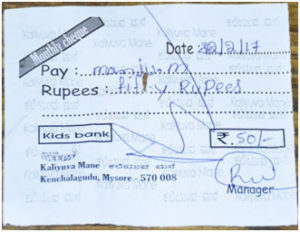 Monthly cheque
Date : 22/2/17
Pay : manju.m
Rupees : Fifty Rupees
Kids bank
₹. 50/-
Kaliyuva Mane - ಕಲಿಯುವ ಮನೆ
Kenchalagudu, Mysore - 570 008
Manager